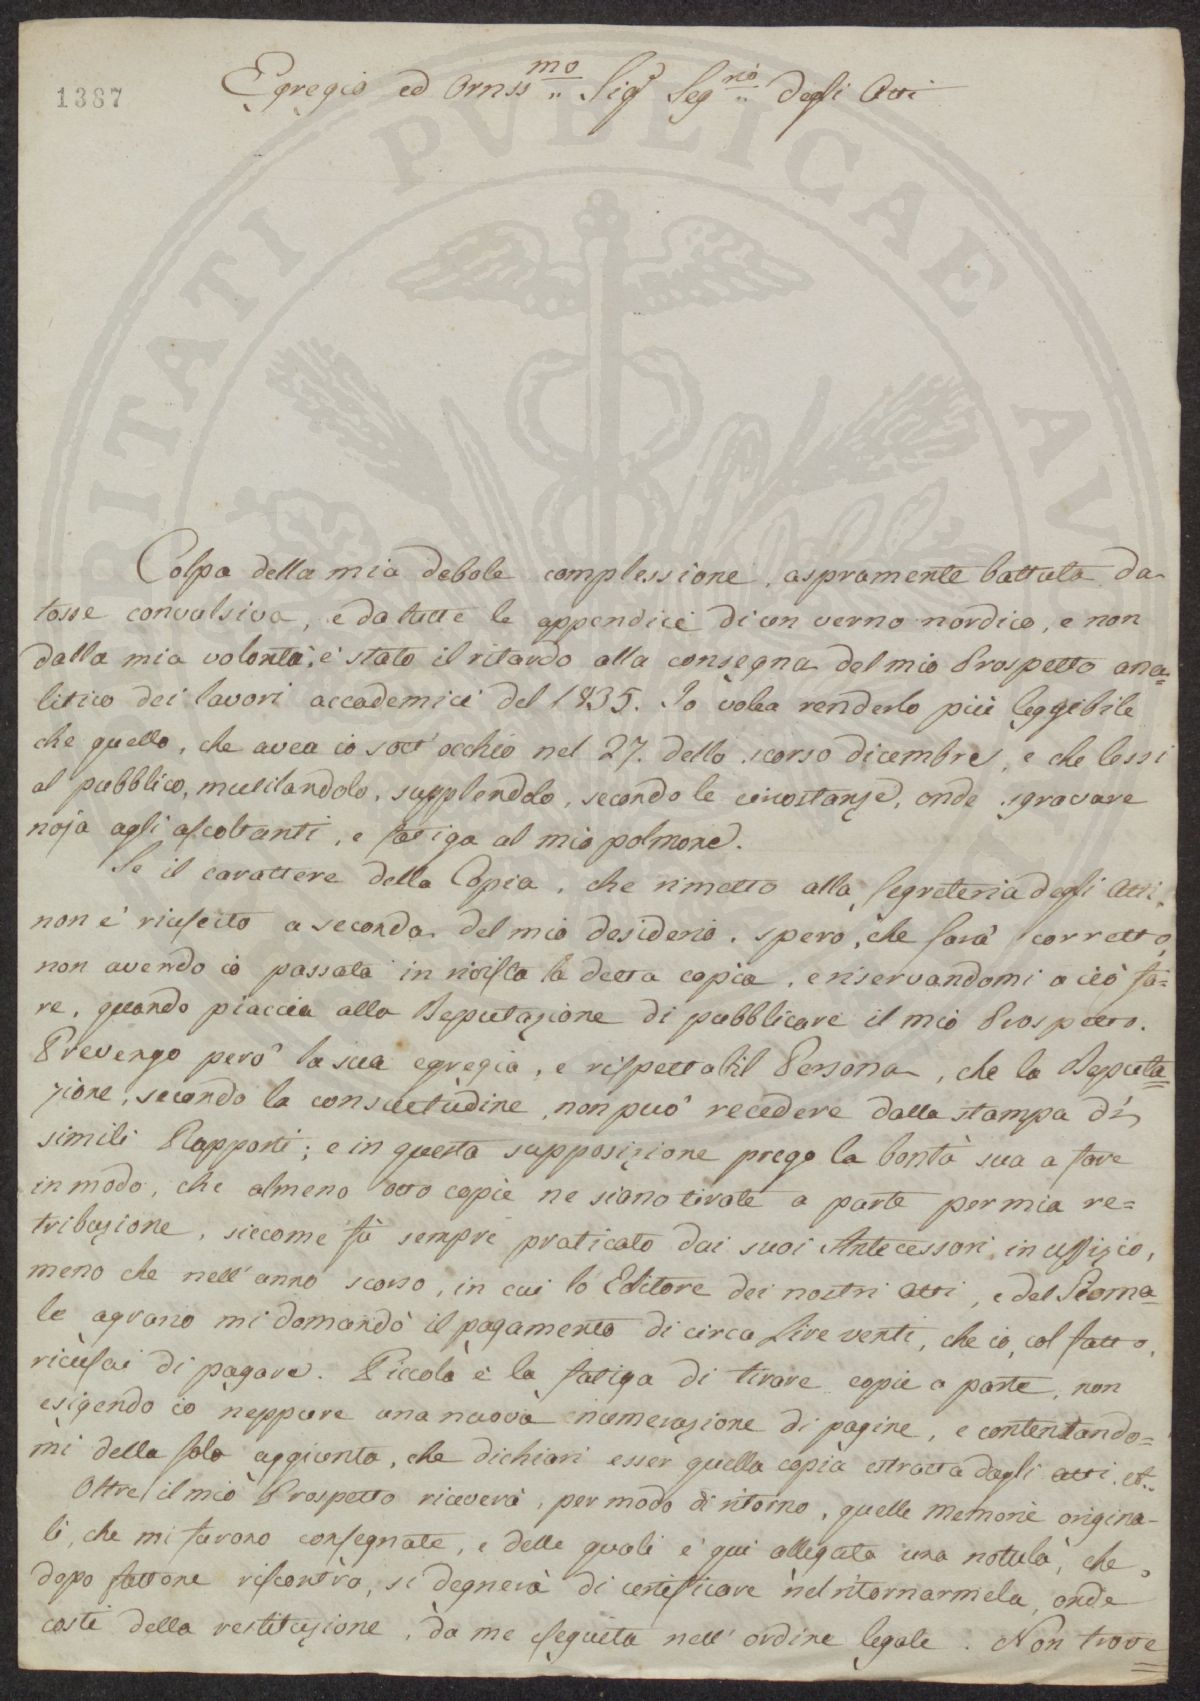 1387
Egregio ed Ornss.mo Sig.r Seg.rio degli Atti
Colpa della mia debole complessione, aspramente battuta da
tosse convulsiva, e da tutte le appendici di un verno nordico, e non
dalla mia volontà, è stato il ritardo alla consegna del mio Prospetto ana=
litico dei lavori accademici del 1835. Io volea renderlo più leggibile
che quello, che avea io sott'occhio nel 27. dello scorso dicembre, e che lessi
al pubblico, mutilandolo, supplendolo, secondo le circostanze, onde sgravare
noja agli ascoltanti, e fatiga al mio polmone.
Se il carattere della Copia, che rimetto alla Segreteria degli Atti,
non è riuscito a seconda del mio desiderio, spero, che sarà corretto,
non avendo io passata in rivista la detta copia, e riservandomi a ciò fa=
re, quando piaccia alla Deputazione di pubblicare il mio Prospetto.
Prevengo però la sua egregia, e rispettabil Persona, che la Deputa=
zione, secondo la consuetudine, non può recedere dalla stampa di
simili Rapporti; e in questa supposizione prego la bontà sua a fare
in modo, che almeno otto copie ne siano tirate a parte per mia re=
tribuzione, siccome fù sempre praticato dai suoi Antecessori in uffizio,
meno che nell'anno scorso, in cui lo Editore dei nostri Atti, e del Giorna=
le agrario mi domandò il pagamento di circa Lire venti, che io, col fatto,
ricusai di pagare. Piccola è la fatiga di tirare copie a parte, non
esigendo io neppure una nuova numerazione di pagine, e contentando=
mi della sola aggiunta, che dichiari esser quella copia estratta dagli Atti.
Oltre il mio Prospetto riceverà, per modo di ritorno, quelle memorie origina=
li, che mi furono consegnate, e delle quali è quì allegata una notula, che,
dopo fattone riscontro, si degnerà di certificare nel ritornarmela, onde
costi della restituzione, da me eseguita nell'ordine legale. Non trove=